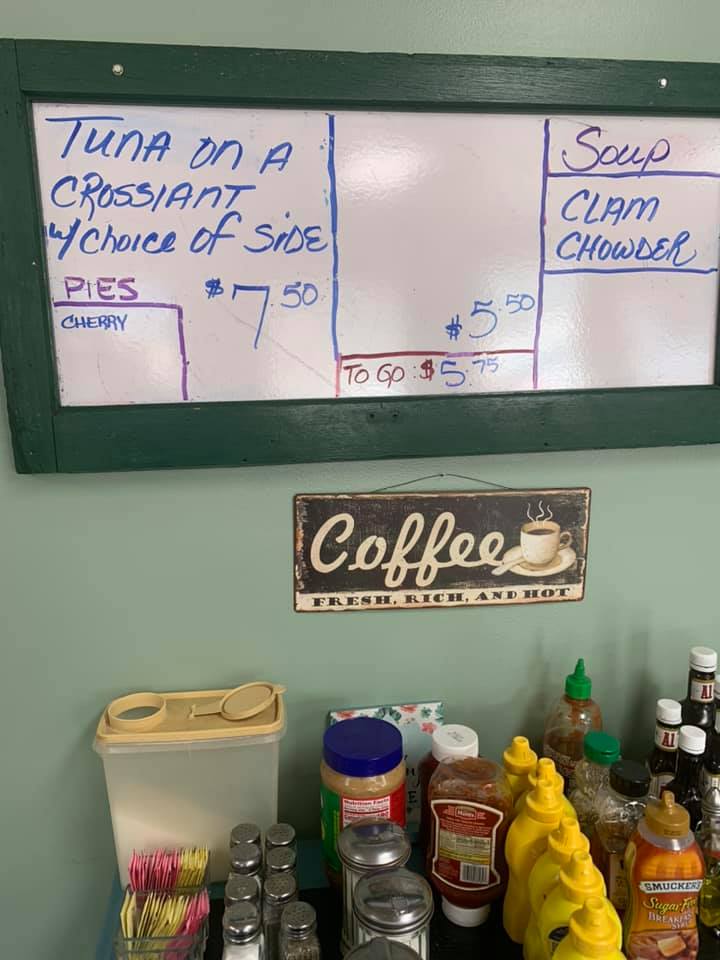 TUNA ON A
CROSSIANT
w/ choice of SIDE
$7.50
PIES
CHERRY
$5.50
TO GO: $5.75
Soup
CLAM
CHOWDER
Coffee
FRESH, RICH, AND HOT
Nutrition Facts
A1
A1
SMUCKER'S
Sugar Free
BREAKFAST